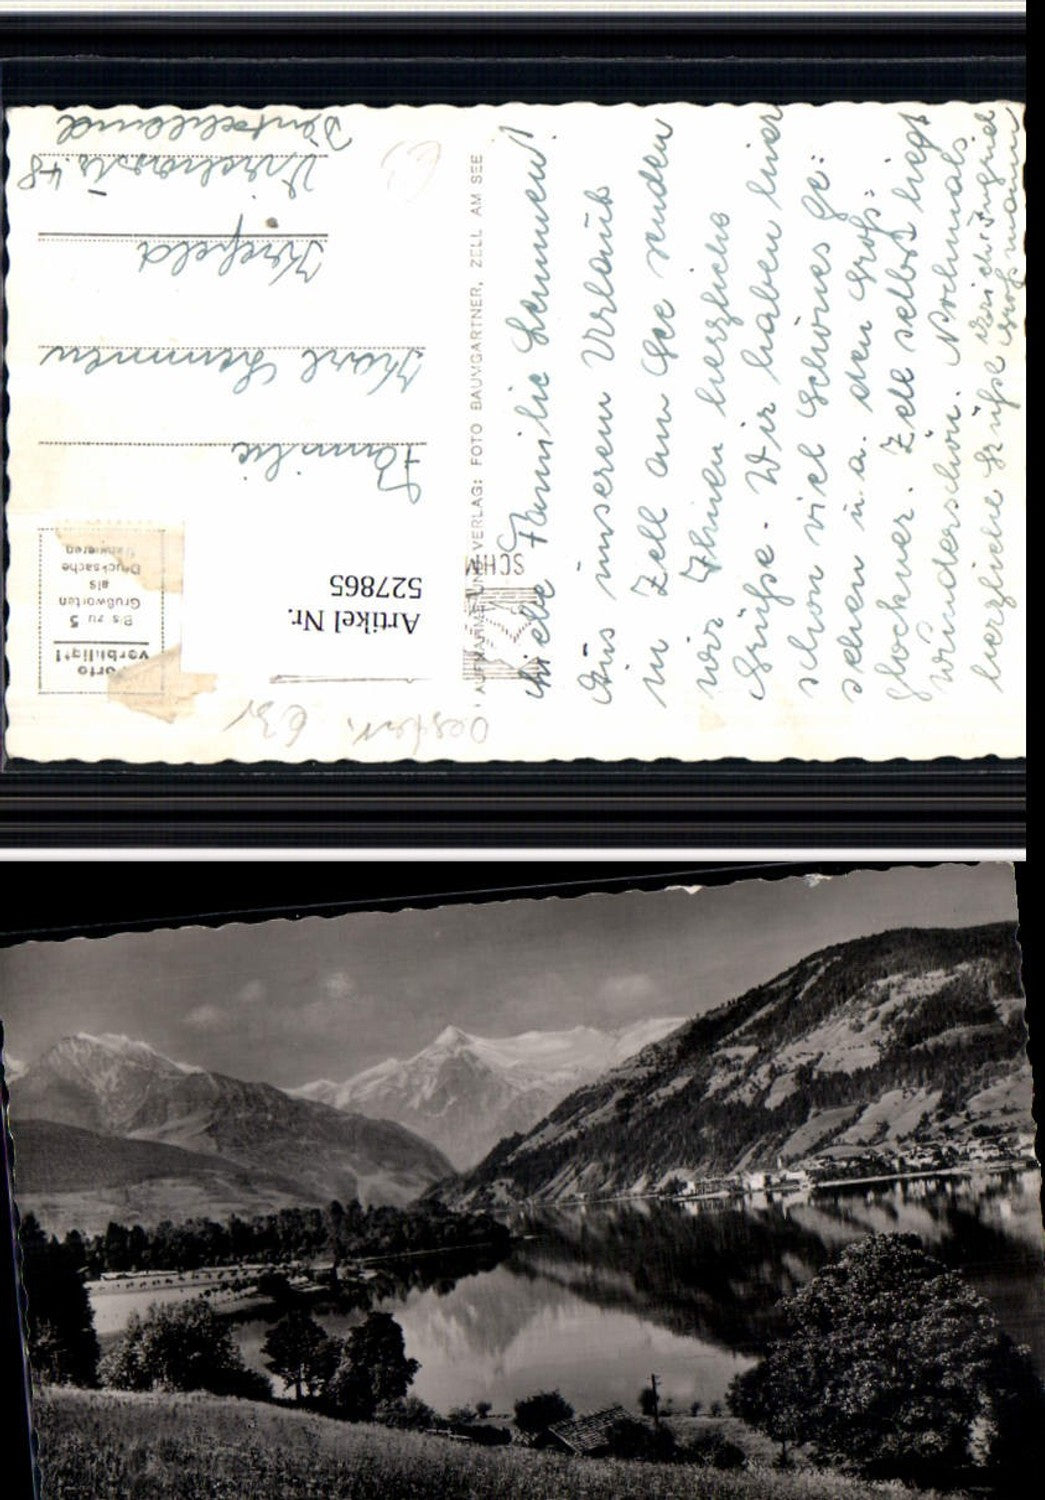 Liebe Familie Lemmen!
Aus unserem Urlaub
in Zell am See senden
wir Ihnen herzliche
Grüße. Wir haben hier
schon viel Schönes ge:
sehen u. a. den Groß:
glockner. Zell selbst liegt
wunderschön. Nochmals
herzliche Grüße
Großmann
AUFNAHME UND VERLAG: FOTO BAUMGARTNER, ZELL AM SEE
SCHM
Oesterr.
Artikel Nr.
527865
Porto
verbilligt!
Bis zu 5
Grußworten
als
Drucksache
frankieren
Familie
Karl Lemmen
Krefeld
48
Deutschland